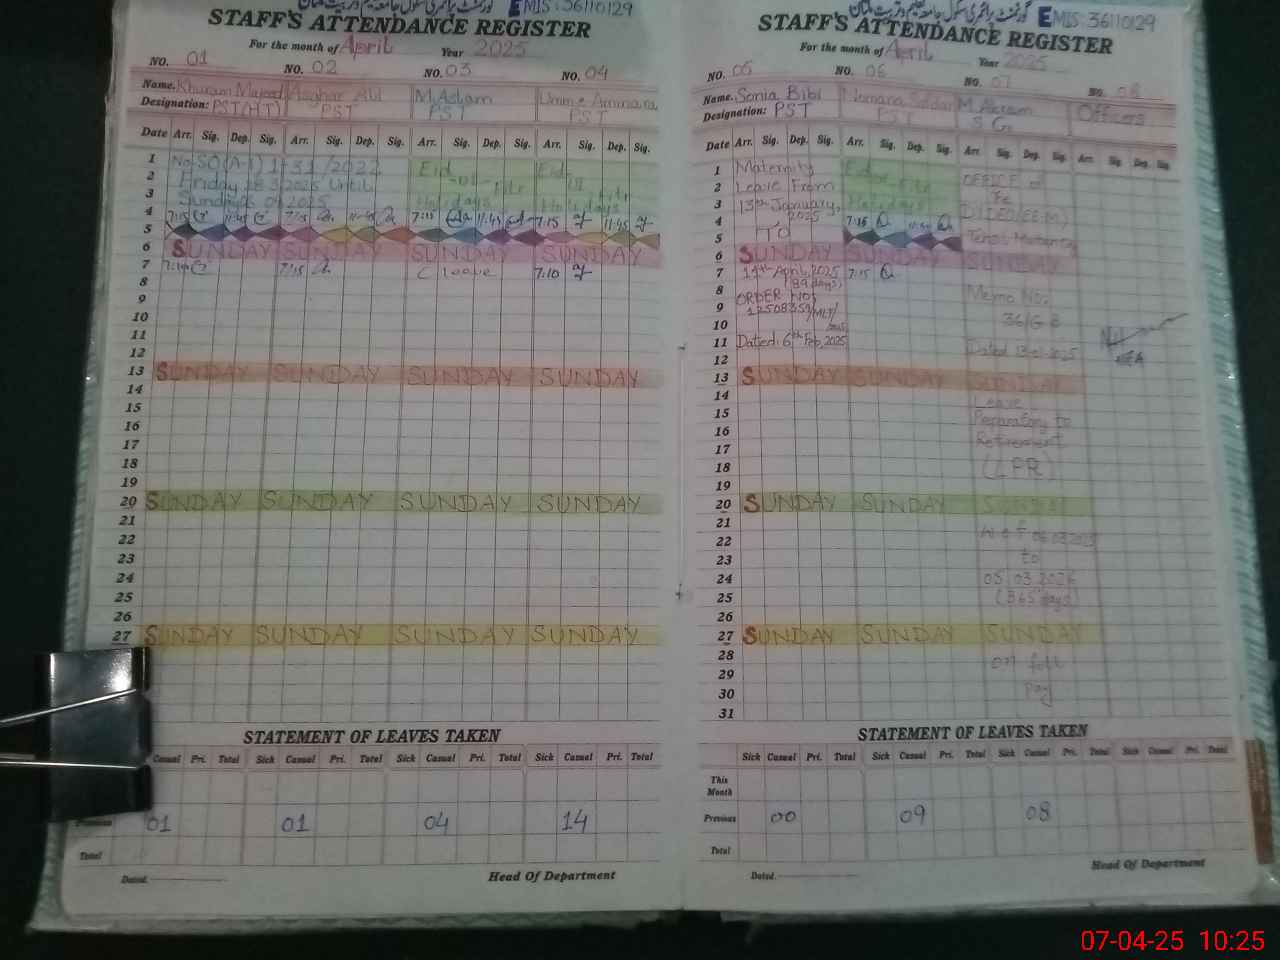 گورنمنٹ پرائمری سکول جامعہ تعلیم و تربیت ملتان EMIS: 36110129
STAFF'S ATTENDANCE REGISTER
For the month of April Year 2025
NO. 01 NO. 02 NO. 03 NO. 04
Name. Khuram Majeed Asghar Ali M. Aslam Umme Ammara
Designation: PST(HT) PST PST PST
Date Arr. Sig. Dep. Sig. Arr. Sig. Dep. Sig. Arr. Sig. Dep. Sig. Arr. Sig. Dep. Sig.
1 No SO(A-I) 1-31/2022 Eid Eid
2 Friday 28 3 2025 Until ul-Fitr ul Fitr
3 Sunday 06 04 2025 Holidays Holidays
4 7:15 11:45 7:15 11:45 7:15 11:45 7:15 11:45
5
6 SUNDAY SUNDAY SUNDAY SUNDAY
7 7:10 7:15 C leave 7:10
8
9
10
11
12
13 SUNDAY SUNDAY SUNDAY SUNDAY
14
15
16
17
18
19
20 SUNDAY SUNDAY SUNDAY SUNDAY
21
22
23
24
25
26
27 SUNDAY SUNDAY SUNDAY SUNDAY
STATEMENT OF LEAVES TAKEN
Casual Pri. Total Sick Casual Pri. Total Sick Casual Pri. Total Sick Casual Pri. Total
Previous 01 01 04 14
Total
Dated
Head Of Department
گورنمنٹ پرائمری سکول جامعہ تعلیم و تربیت ملتان EMIS: 36110129
STAFF'S ATTENDANCE REGISTER
For the month of April Year 2025
NO. 05 NO. 06 NO. 07 NO. 08
Name. Sonia Bibi M. Akram Officers
Designation: PST PST S.G.
Date Arr. Sig. Dep. Sig. Arr. Sig. Dep. Sig. Arr. Sig. Dep. Sig. Arr. Sig. Dep. Sig.
1 Maternity Eid OFFICE of
2 Leave From ul-Fitr The
3 13th January, Holidays D.I DEO(EE-M)
4 2025 7:15
5 TO Tehsil Multan
6 SUNDAY SUNDAY SUNDAY
7 14th April, 2025 7:15
8 (89 days) Memo No:
9 ORDER No: 12508359/MLT/ 36/G-B
10 2025
11 Dated: 6th Feb, 2025 Dated 13-01-2025
12
13 SUNDAY SUNDAY SUNDAY
14 Leave
15 Preparatory to
16 Retirement
17
18 (LPR)
19
20 SUNDAY SUNDAY SUNDAY
21
22 W e F 06 03 2025
23 to
24 05 03 2026
25 (365 days)
26
27 SUNDAY SUNDAY SUNDAY
28 on full
29
30 pay
31
STATEMENT OF LEAVES TAKEN
Sick Casual Pri. Total Sick Casual Pri. Total Sick Casual Pri. Total Sick Casual Pri. Total
This Month
Previous 00 09 08
Total
Dated
Head Of Department
07-04-25 10:25